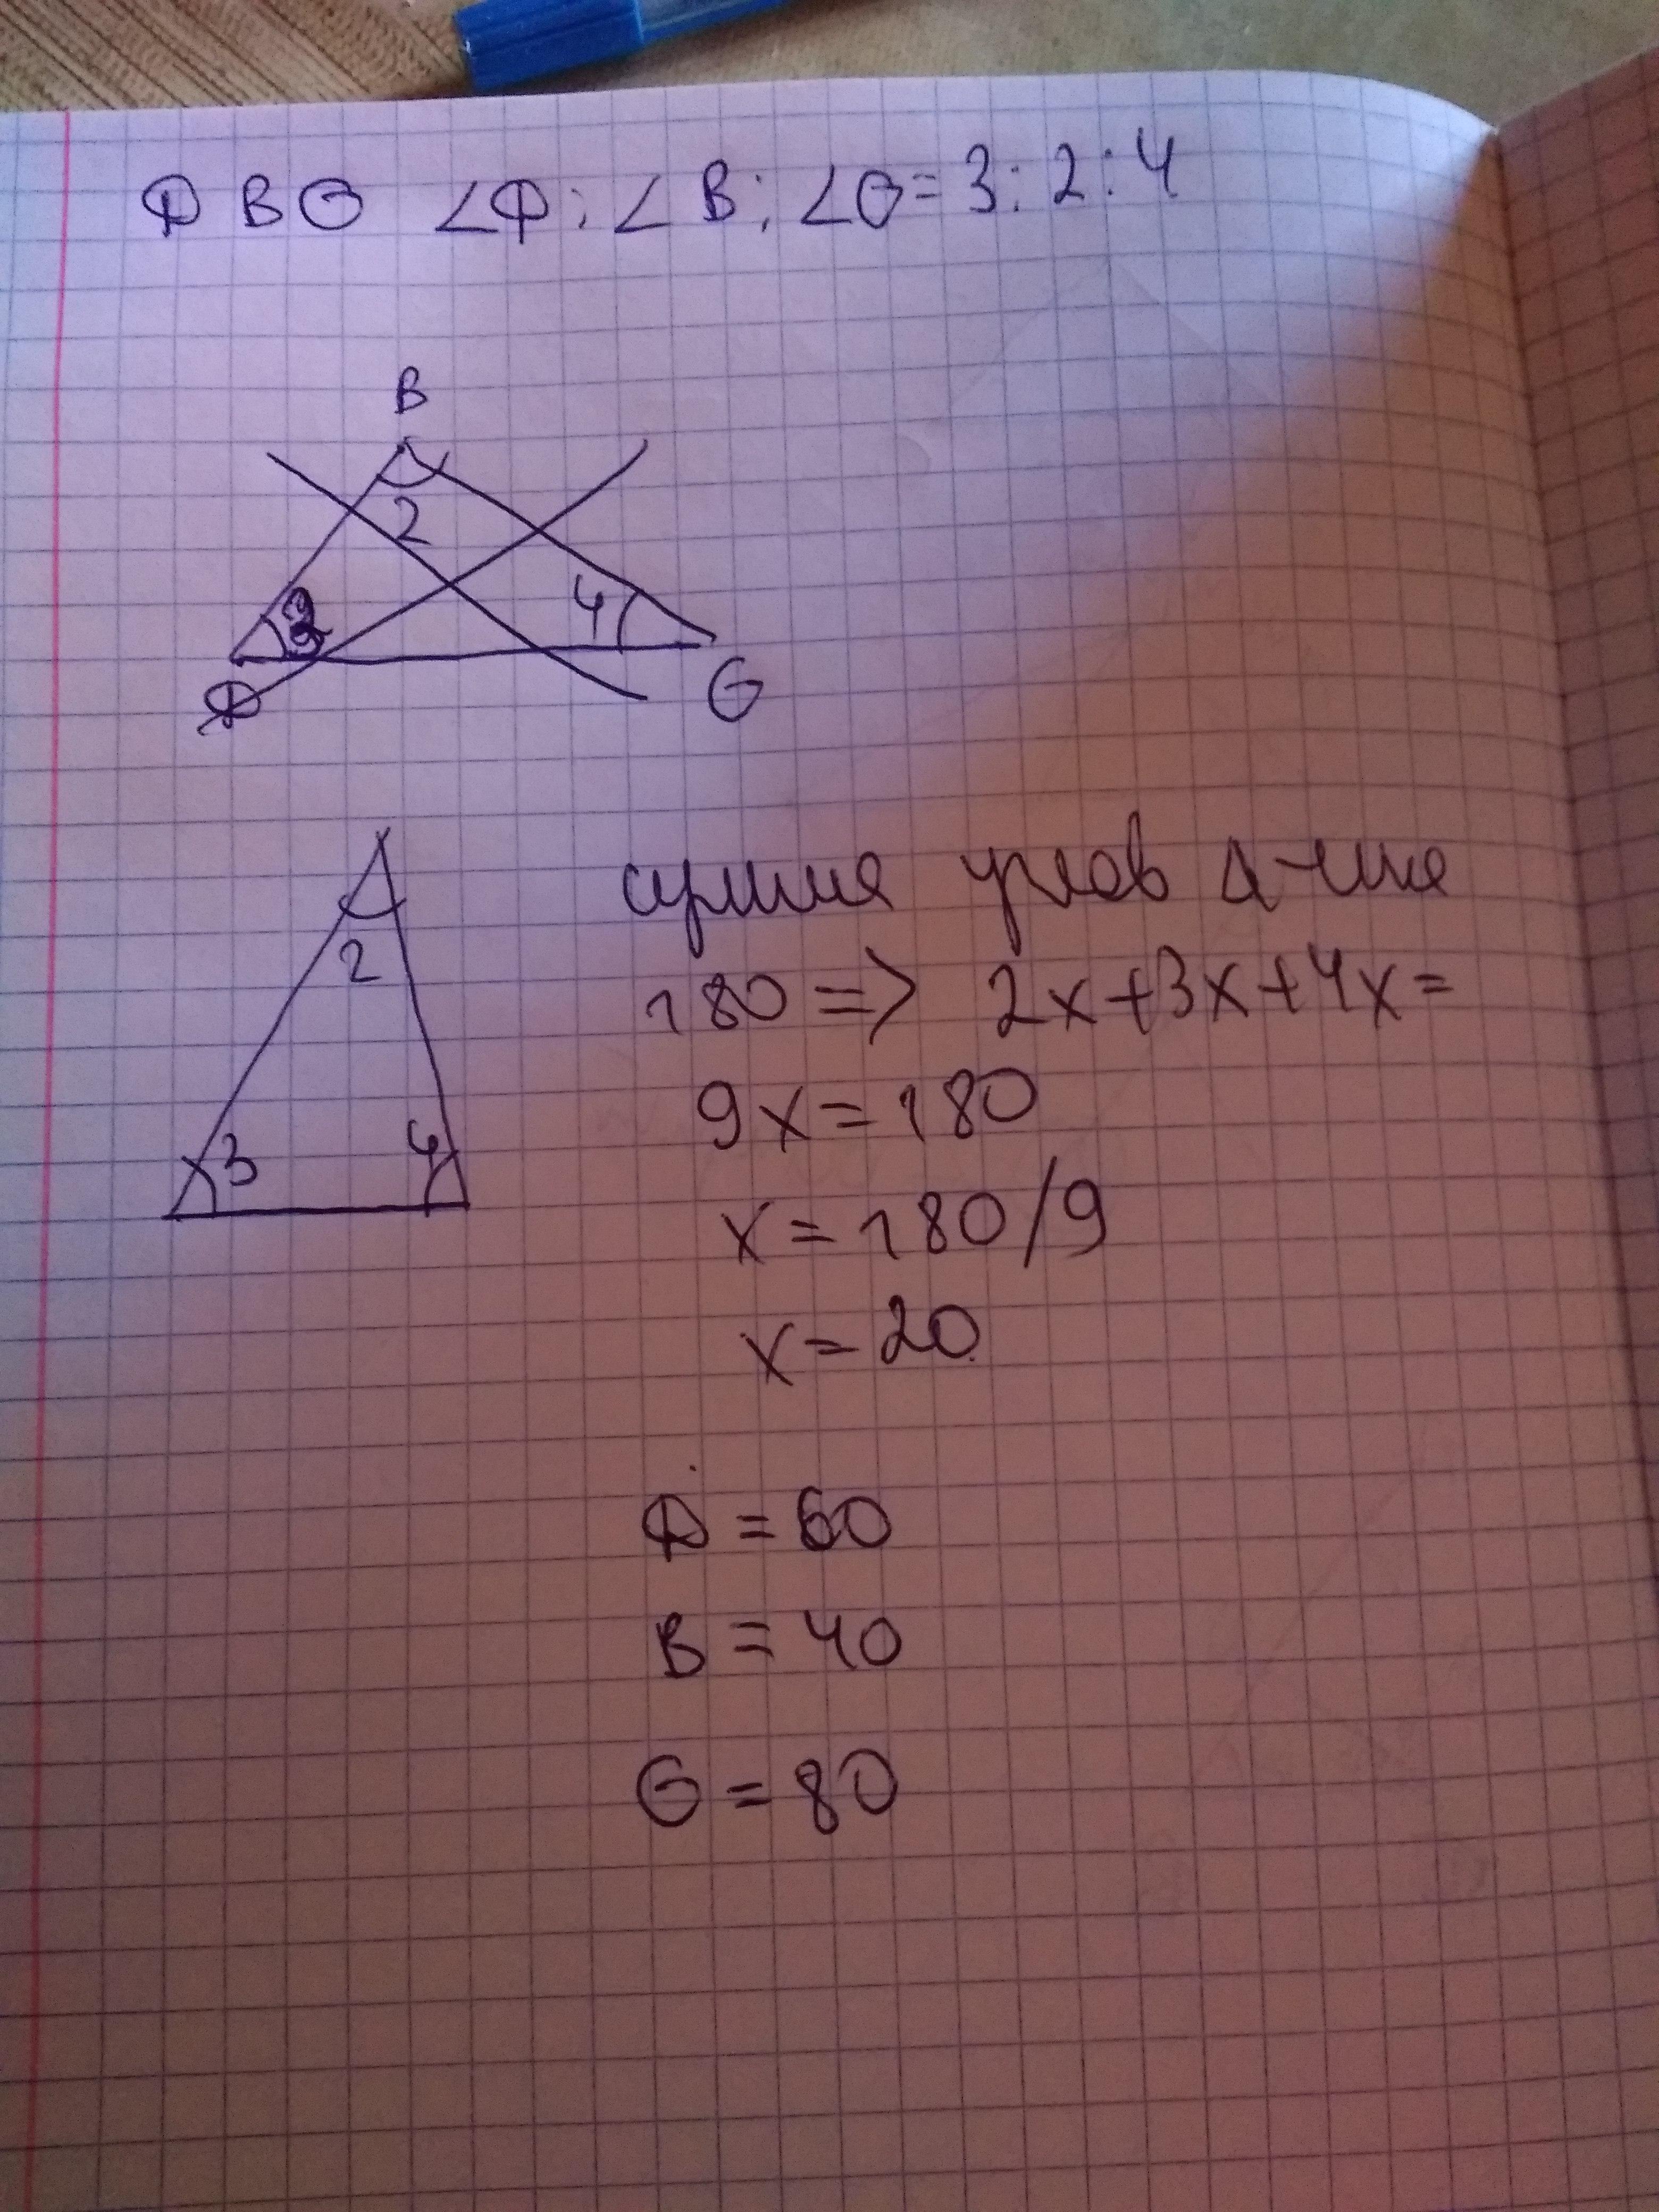 D B G ∠D : ∠B : ∠G = 3 : 2 : 4
B
2
3
4
D
G
2
3
4
сумма углов Δ-ика
180 => 2x+3x+4x=
9x=180
x=180/9
x=20
D=60
B=40
G=80